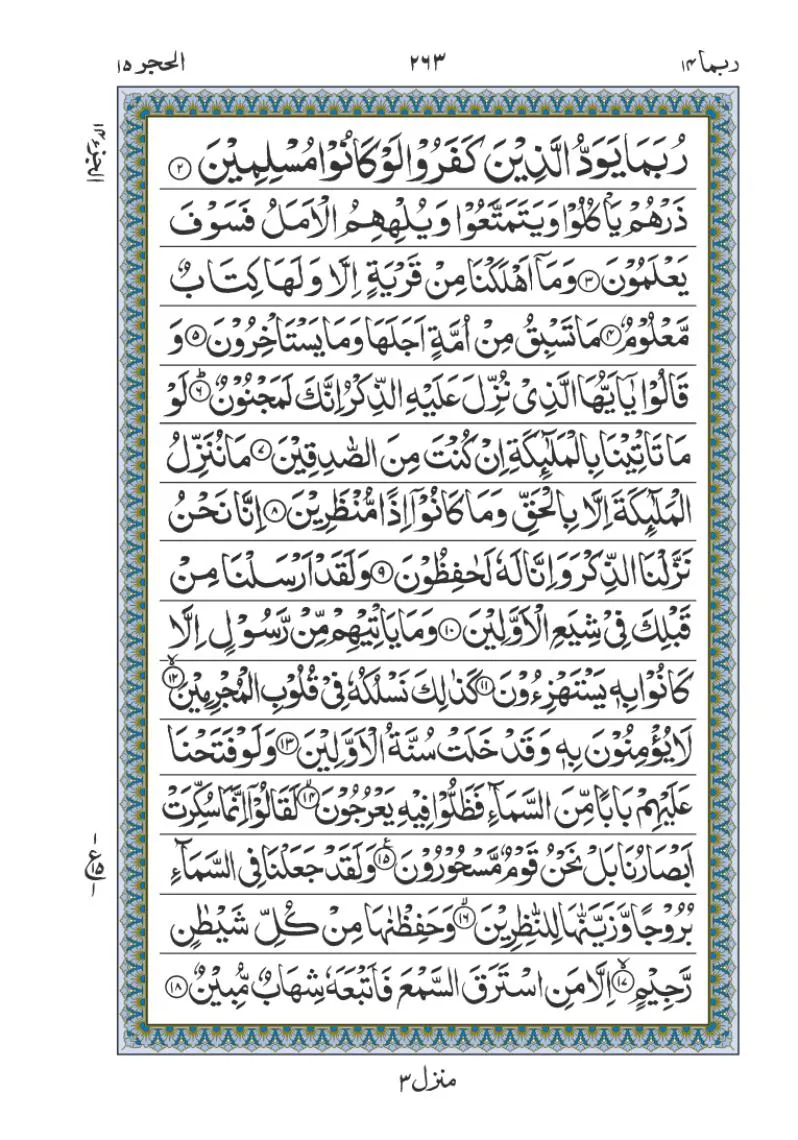 ربما ۱۴
۲۶۳
الحجر ۱۵
الجزء ۱۴
رُبَمَا يَوَدُّ الَّذِيْنَ كَفَرُوْا لَوْ كَانُوْا مُسْلِمِيْنَ ۲
ذَرْهُمْ يَاْكُلُوْا وَيَتَمَتَّعُوْا وَيُلْهِهِمُ الْاَمَلُ فَسَوْفَ
يَعْلَمُوْنَ ۳ وَمَاۤ اَهْلَكْنَا مِنْ قَرْيَةٍ اِلَّا وَلَهَا كِتَابٌ
مَّعْلُوْمٌ ۴ مَا تَسْبِقُ مِنْ اُمَّةٍ اَجَلَهَا وَمَا يَسْتَاْخِرُوْنَ ۵ وَ
قَالُوْا يٰۤاَيُّهَا الَّذِىْ نُزِّلَ عَلَيْهِ الذِّكْرُ اِنَّكَ لَمَجْنُوْنٌ ۶ؕ لَوْ
مَا تَاْتِيْنَا بِالْمَلٰٓئِكَةِ اِنْ كُنْتَ مِنَ الصّٰدِقِيْنَ ۷ مَا نُنَزِّلُ
الْمَلٰٓئِكَةَ اِلَّا بِالْحَقِّ وَمَا كَانُوْۤا اِذًا مُّنْظَرِيْنَ ۸ اِنَّا نَحْنُ
نَزَّلْنَا الذِّكْرَ وَاِنَّا لَهٗ لَحٰفِظُوْنَ ۹ وَلَقَدْ اَرْسَلْنَا مِنْ
قَبْلِكَ فِىْ شِيَعِ الْاَوَّلِيْنَ ۱۰ وَمَا يَاْتِيْهِمْ مِّنْ رَّسُوْلٍ اِلَّا
كَانُوْا بِهٖ يَسْتَهْزِءُوْنَ ۱۱ كَذٰلِكَ نَسْلُكُهٗ فِىْ قُلُوْبِ الْمُجْرِمِيْنَ ۱۲ۙ
لَا يُؤْمِنُوْنَ بِهٖ وَقَدْ خَلَتْ سُنَّةُ الْاَوَّلِيْنَ ۱۳ وَلَوْ فَتَحْنَا
عَلَيْهِمْ بَابًا مِّنَ السَّمَآءِ فَظَلُّوْا فِيْهِ يَعْرُجُوْنَ ۱۴ۙ لَقَالُوْۤا اِنَّمَا سُكِّرَتْ
اَبْصَارُنَا بَلْ نَحْنُ قَوْمٌ مَّسْحُوْرُوْنَ ۱۵ وَلَقَدْ جَعَلْنَا فِى السَّمَآءِ
ع ۱۵ ۱
بُرُوْجًا وَّزَيَّنّٰهَا لِلنّٰظِرِيْنَ ۱۶ۙ وَحَفِظْنٰهَا مِنْ كُلِّ شَيْطٰنٍ
رَّجِيْمٍ ۱۷ۙ اِلَّا مَنِ اسْتَرَقَ السَّمْعَ فَاَتْبَعَهٗ شِهَابٌ مُّبِيْنٌ ۱۸
منزل ۳